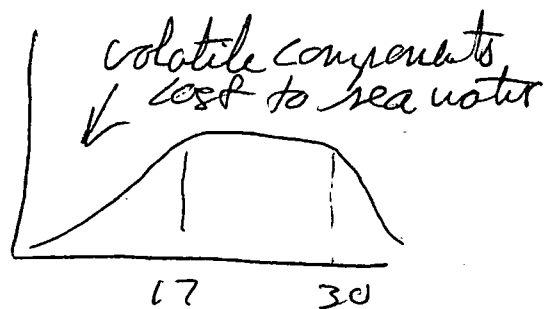 volatile components
lost to sea water
17 30